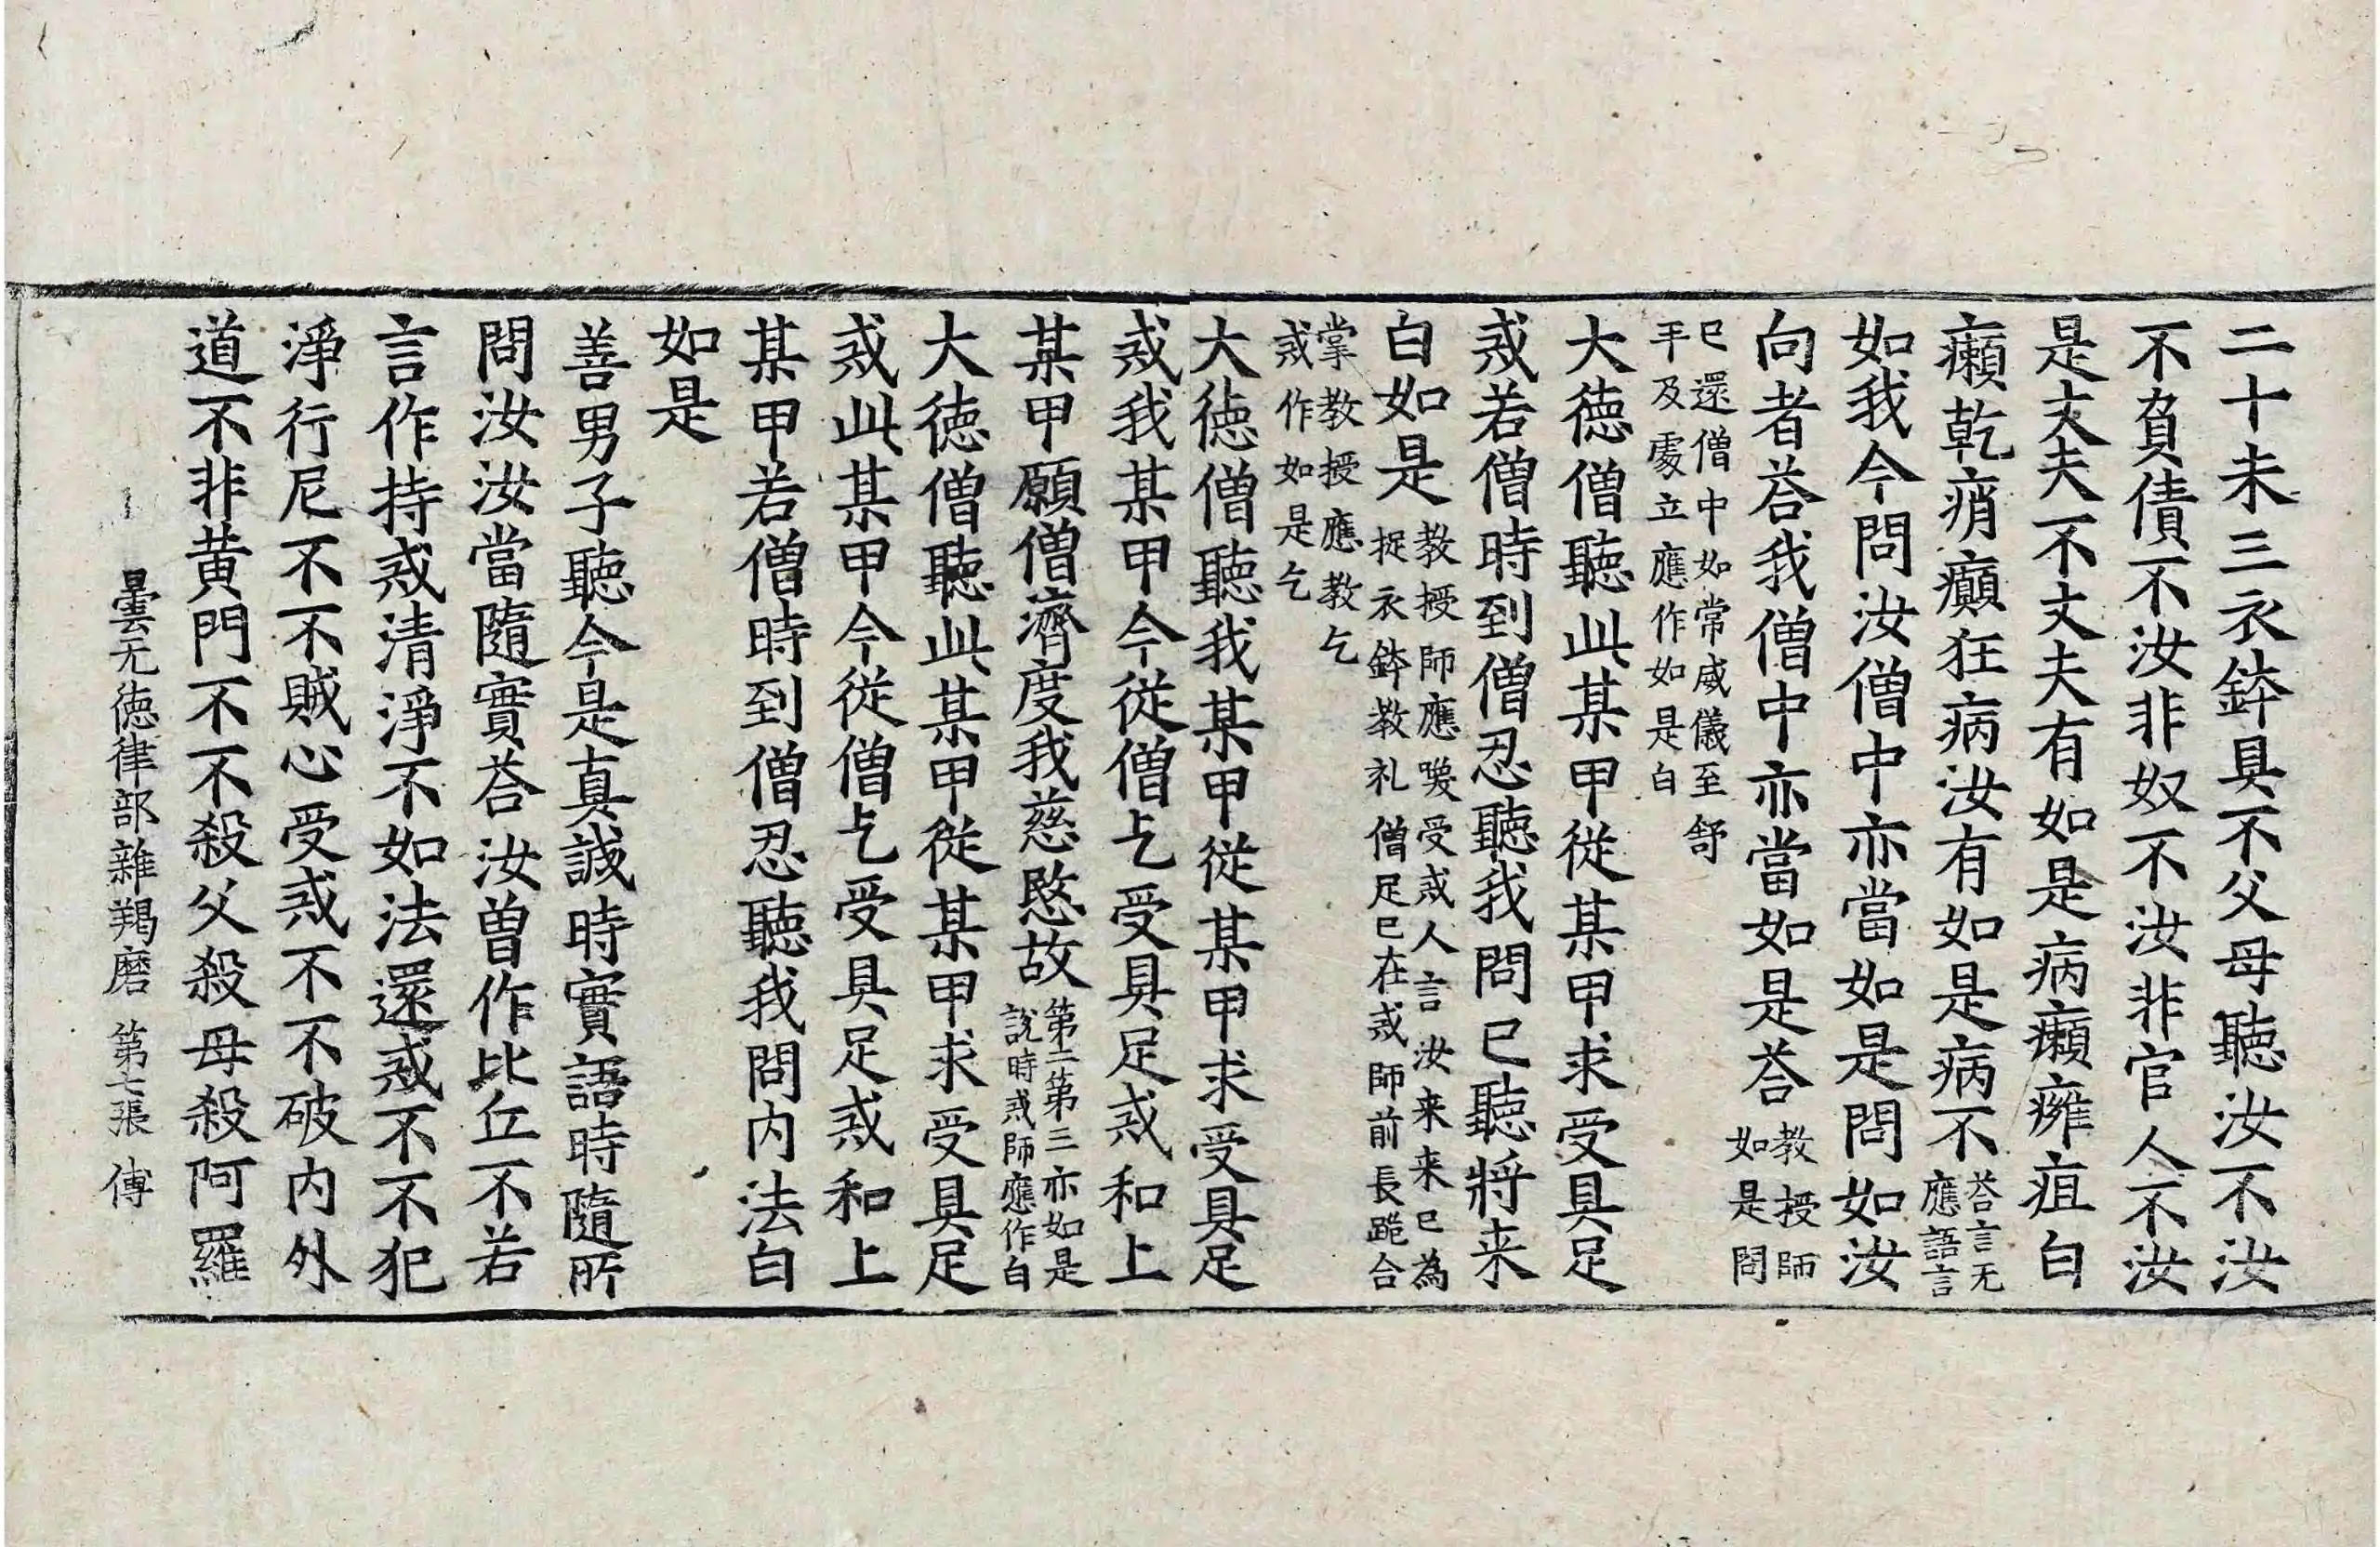 二十未三衣鉢具不父母聽汝不汝
不負債不汝非奴不汝非官人不汝
是丈夫不丈夫有如是病癩癰疽白
癩乾痟癲狂病汝有如是病不荅言无
應語言
如我今問汝僧中亦當如是問如汝
向者荅我僧中亦當如是荅教授師
如是問
已還僧中如常威儀至舒
手及處立應作如是白
大德僧聽此某甲從某甲求受具足
戒若僧時到僧忍聽我問已聽將来
白如是教授師應喚受戒人言汝来来已為
捉衣鉢教礼僧足已在戒師前長跪合
掌教授應教乞
戒作如是乞
大德僧聽我某甲從某甲求受具足
戒我某甲今從僧乞受具足戒和上
某甲願僧濟度我慈愍故第二第三亦如是
說時戒師應作白
大德僧聽此某甲從某甲求受具足
戒此某甲今從僧乞受具足戒和上
某甲若僧時到僧忍聽我問内法白
如是
善男子聽今是真誠時實語時隨所
問汝汝當隨實荅汝曾作比丘不若
言作持戒清淨不如法還戒不不犯
淨行尼不不賊心受戒不不破内外
道不非黄門不不殺父殺母殺阿羅
曇无德律部雜羯磨 第七張 傅